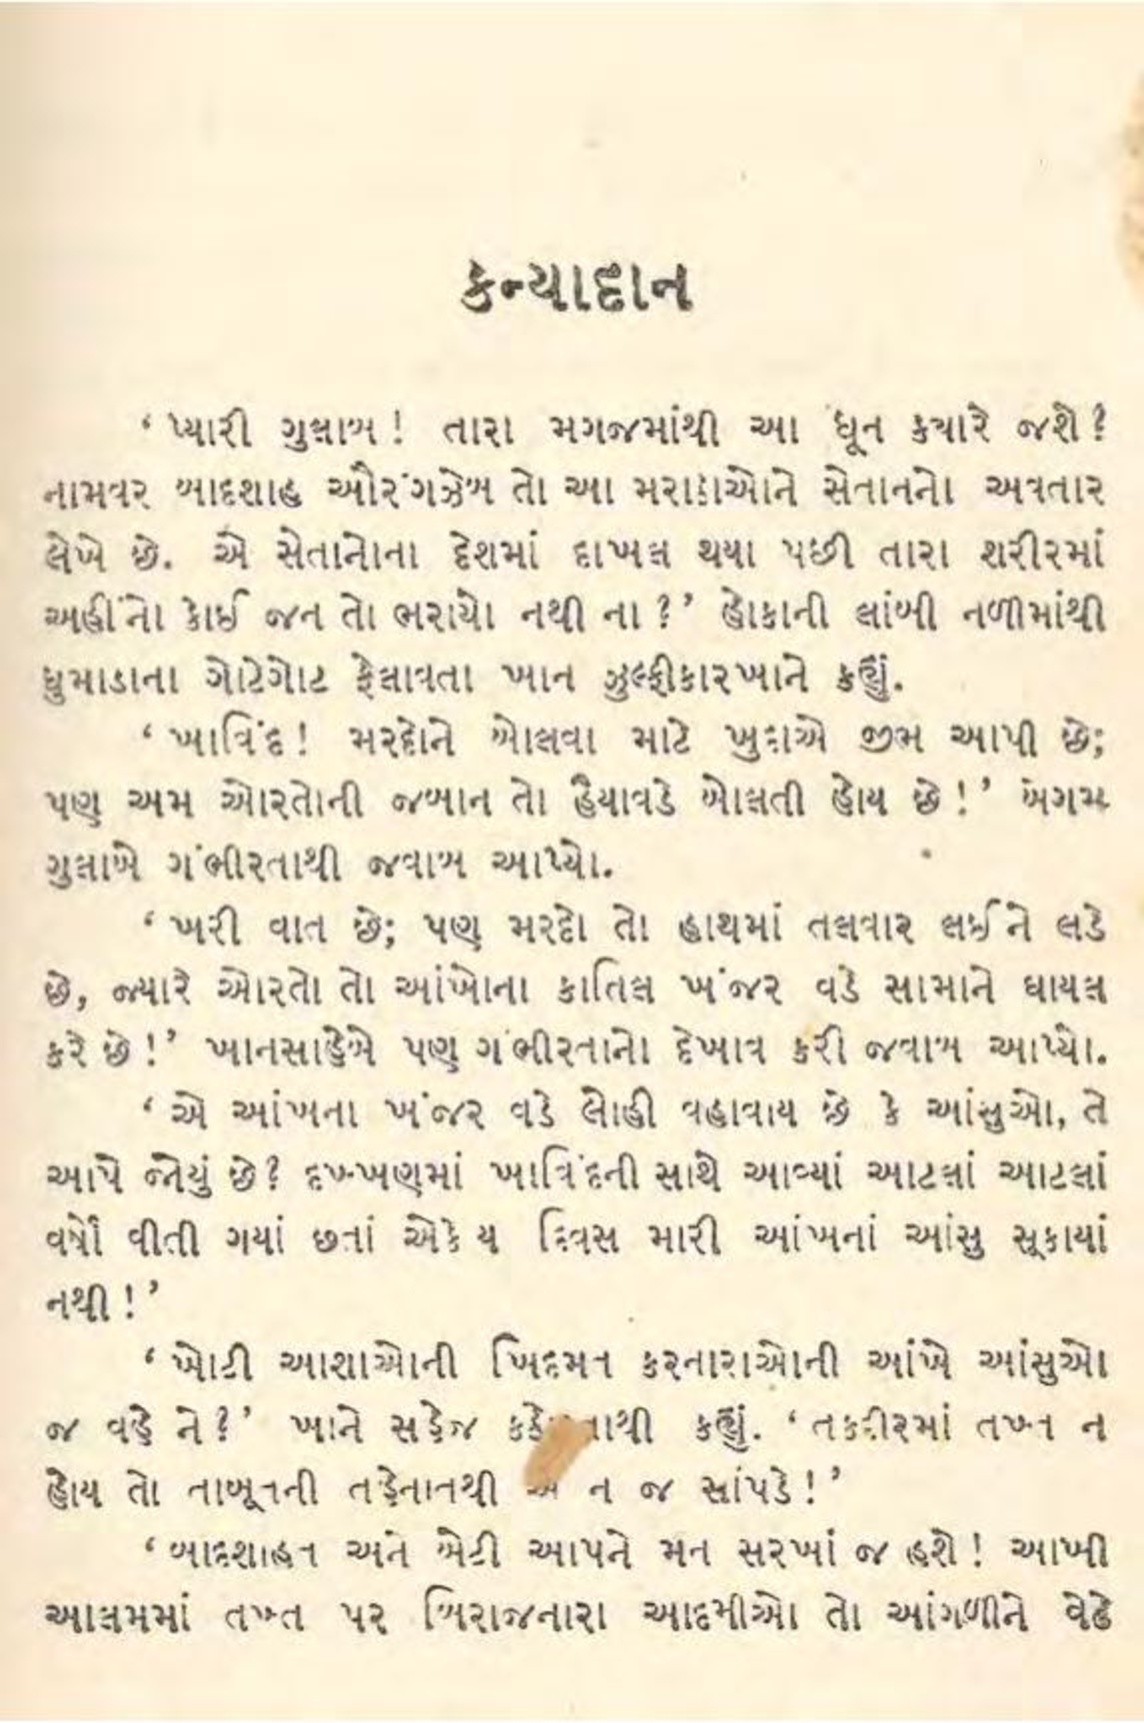 કન્યાદાન
‘ પ્યારી ગુલાબ ! તારા મગજમાંથી આ ધૂન ક્યારે જશે ?
નામવર બાદશાહ ઔરંગઝેબ તો આ મરાઠાઓને સેતાનનો અવતાર
લેખે છે. એ સેતાનોના દેશમાં દાખલ થયા પછી તારા શરીરમાં
અહીંનો કોઈ જન તો ભરાયો નથી ના ?’ હોકાની લાંબી નળીમાંથી
ધુમાડાના ગોટેગોટ ફેલાવતા ખાન ઝુલ્ફીકારખાને કહ્યું.
‘ ખાવિંદ ! મરદોને બોલવા માટે ખુદાએ જીભ આપી છે;
પણ અમ ઓરતોની જબાન તો હૈયાવડે બોલતી હોય છે ! ’ બેગમ
ગુલાબે ગંભીરતાથી જવાબ આપ્યો.
‘ ખરી વાત છે; પણ મરદો તો હાથમાં તલવાર લઈને લડે
છે, જ્યારે ઓરતો તો આંખોના કાતિલ ખંજર વડે સામાને ઘાયલ
કરે છે ! ’ ખાનસાહેબે પણ ગંભીરતાનો દેખાવ કરી જવાબ આપ્યો.
‘ એ આંખના ખંજર વડે લોહી વહાવાય છે કે આંસુઓ, તે
આપે જોયું છે ? દખ્ખણમાં ખાવિંદની સાથે આવ્યાં આટલાં આટલાં
વર્ષો વીતી ગયાં છતાં એકેય દિવસ મારી આંખનાં આંસુ સૂકાયાં
નથી ! ’
‘ ખોટી આશાઓની ખિદમત કરનારાઓની આંખે આંસુઓ
જ વહે ને ?’ ખાને સહેજ કહ્યું. ‘ તકદીરમાં તખ્ત ન
હોય તો તાબૂતની તહેનાતથી ન જ સાંપડે ! ’
‘ બાદશાહત અને બેટી આપને મન સરખાં જ હશે ! આખી
આલમમાં તખ્ત પર બિરાજનારા આદમીઓ તો આંગળીને વેઢે